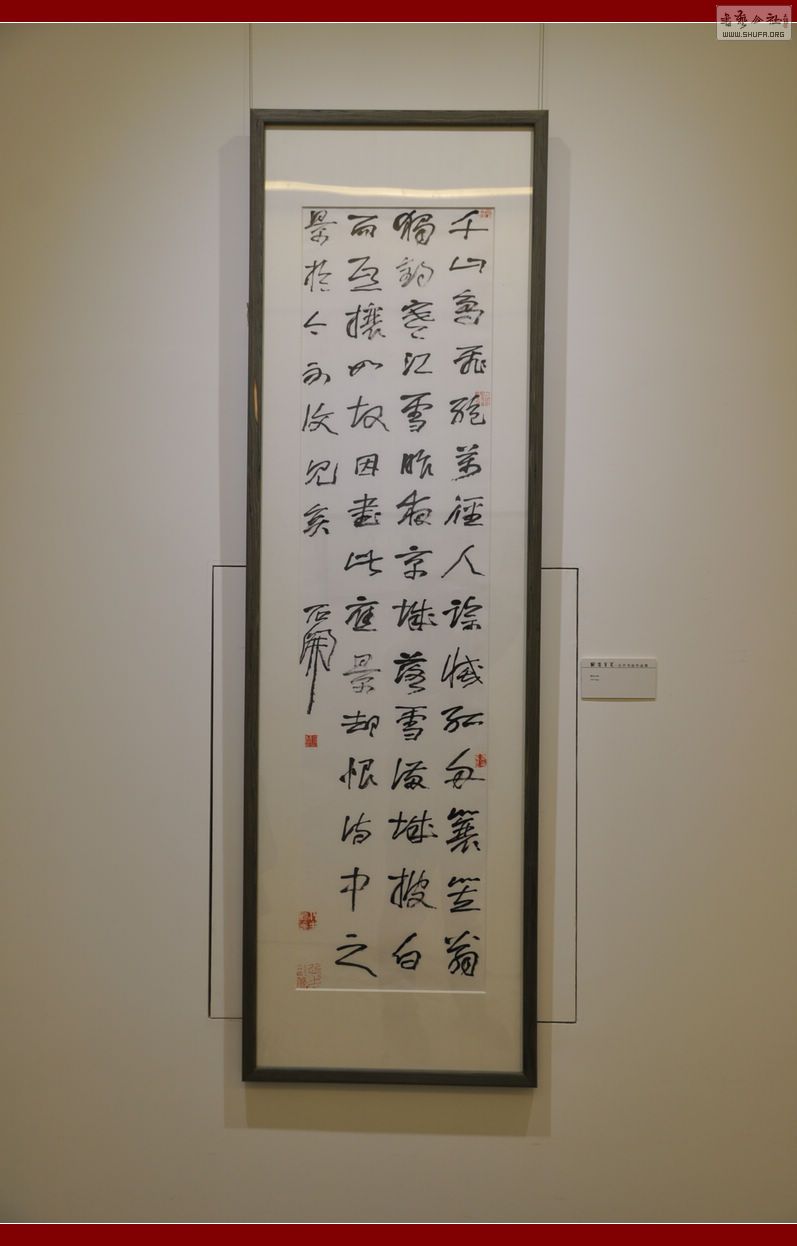 書藝公社
WWW.SHUFA.ORG
千山鳥飛絶萬徑人踪滅孤舟蓑笠翁
獨釣寒江雪昨夜京城落雪滿城披白
而熙攘如故因書此應景却恨詩中之
景於今見矣
石開